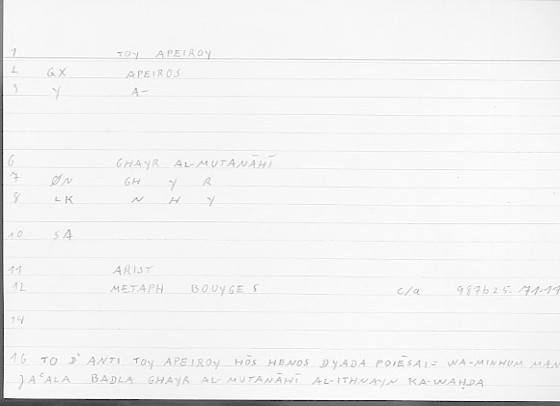 1 TOY APEIROY
2 GX APEIROS
3 Y A-
6 GHAYR AL-MUTANĀHĪ
7 ØN GH Y R
8 LK N H Y
10 SA
11 ARIST
12 METAPH BOUYGES c/a 987b25. 71-11
14
16 TO D' ANTI TOY APEIROY HŌS HENOS DYADA POIĒSAI = WA-MINHUM MAN
JAʿALA BADLA GHAYR AL-MUTANĀHĪ AL-ITHNAYN KA-WAḤDA